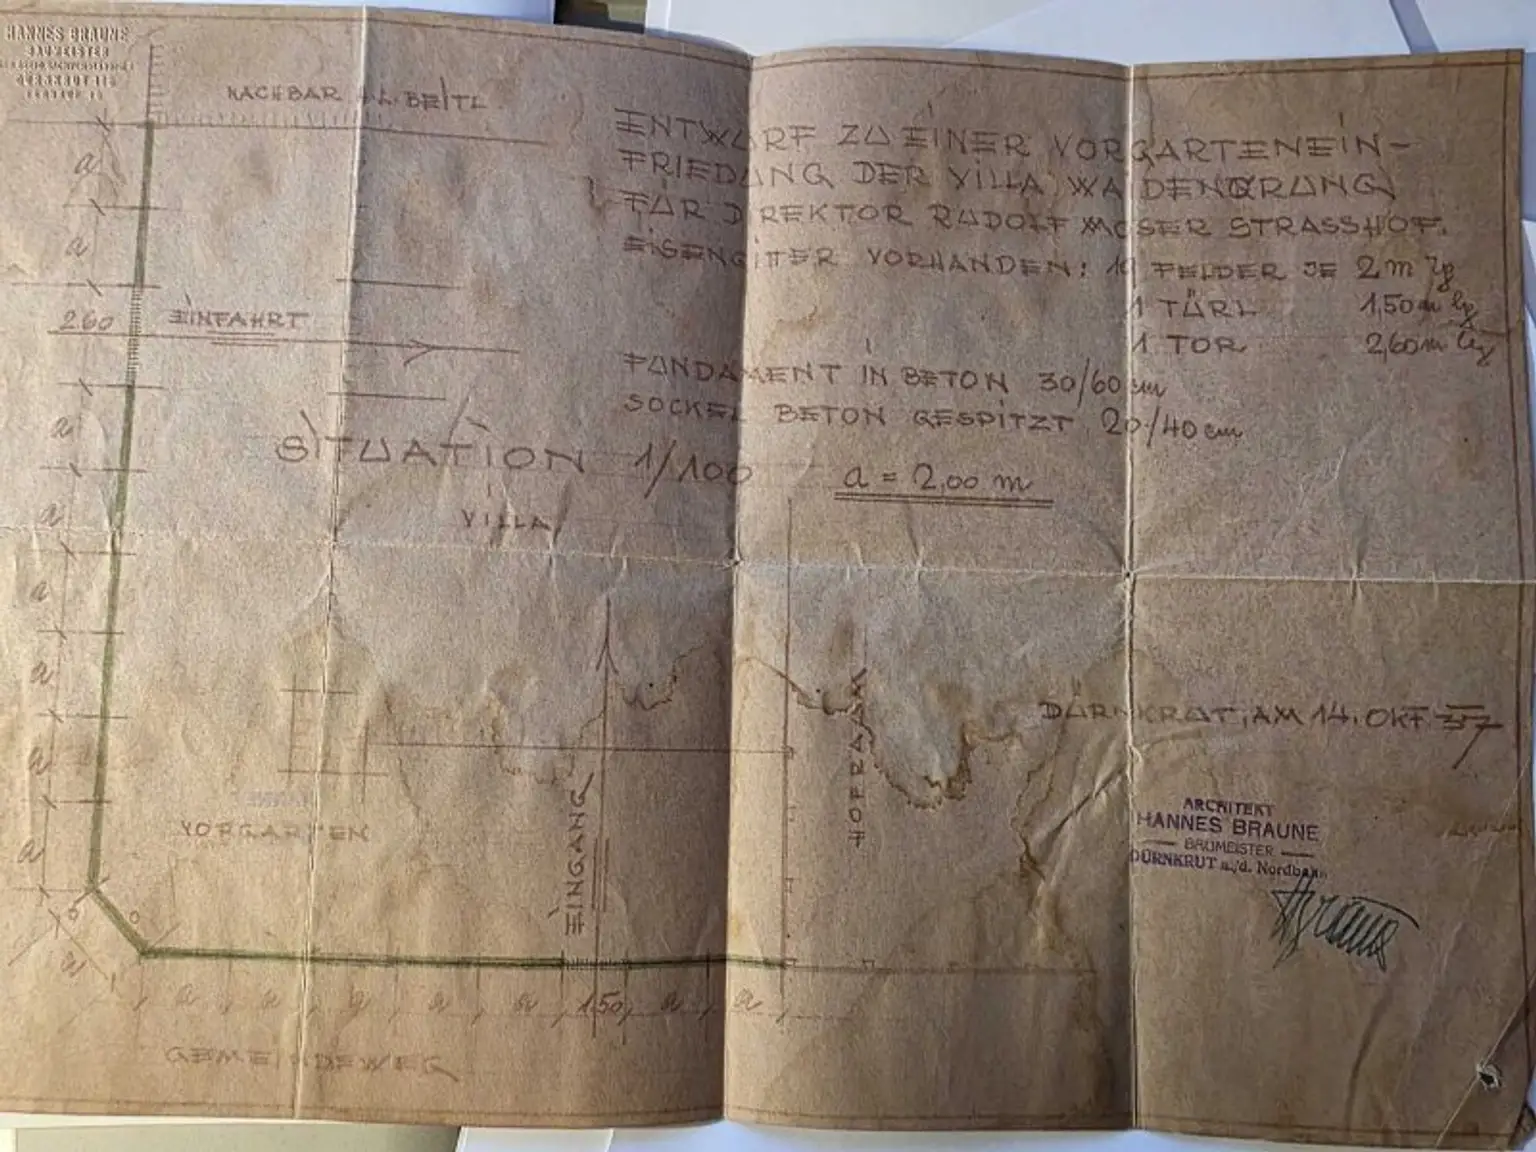 HANNES BRAUNE
BAUMEISTER
DÜRNKRUT 115
NACHBAR L. BEITL
ENTWURF ZU EINER VORGARTENEIN-
FRIEDUNG DER VILLA WALDENQRUNG
FÜR DIREKTOR RUDOLF MOSER STRASSHOF.
EISENGITTER VORHANDEN: FELDER JE 2 m lg
1 TÜRL 1,50 m lg
1 TOR 2,60 m lg
FUNDAMENT IN BETON 30/60 cm
SOCKEL BETON GESPITZT 20/40 cm
a = 2,00 m
a
a
260 EINFAHRT
a
SITUATION 1/100
a
VILLA
a
a
a
a
HOFRAUM
DÜRNKRUT, AM 14. OKT. 37
VORGARTEN
EINGANG
ARCHITEKT
HANNES BRAUNE
BAUMEISTER
DÜRNKRUT a./d. Nordbahn
HBraune
a
a a a a a 1,50 a a
GEMEINDEWEG